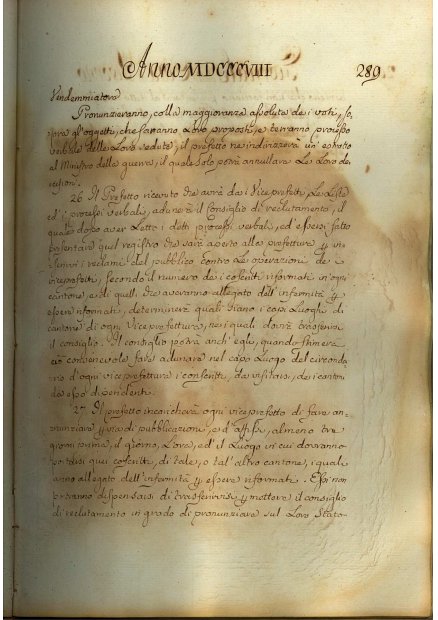 Anno MDCCCVIII 289
Vendemmiatora
Pronunzieranno, colla maggioranza assoluta dei voti, so,
pra gl'oggetti, che saranno Loro proposti, e terranno processo
verbale delle Loro sedute; il prefetto ne indirizzerà un' estratto
al Ministro della guerra, il quale solo potrà annullare Le Loro de,
cisioni.
26. Il Prefetto ricevute che avrà dai Viceprefetti, Le Liste
ed' i processi verbali, adunerà il Consiglio di reclutamento, il
quale dopo aver Letto i detti processi verbali, ed' essersi fatto
presentare quel registro che sarà aperto alla prefettura
i reclami del pubblico contro Le operazioni dei
viceprefetti, secondo il numero dei coscritti riformati in ogni
cantone, e di quelli, che averanno allegato dell' infermità
essere riformati, determinerà quali siano i capi Luoghi di
cantone di ogni Viceprefettura, nei quali dovrà trasferirsi
il consiglio. Il consiglio potrà anch' egli, quando stimerà
ciò convenevole fare adunare nel capo Luogo del circonda,
rio d'ogni viceprefettura i conscritti da visitarsi, dei cantoni
da esso dipendenti.
27. Il prefetto incaricherà ogni viceprefetto di fare an,
nunziare di pubblicazione, e d'affissi, almeno tre
giorni prima, il giorno, L'ora, ed' il Luogo in cui dovranno
portarsi quei coscritti, di tale, o tal' altro cantone, i quali
anno allegato dell' infermità essere riformati. Essi non
potranno dispensarsi di trasferirvisi, mettere il consiglio
di reclutamento in grado di pronunziare sul Loro Stato.